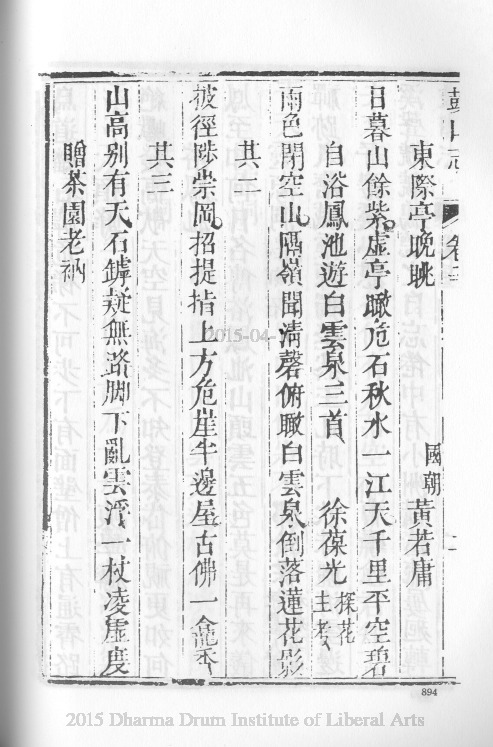 鼓山志 卷
東際亭晚眺 國朝黃若庸
日暮山餘紫虛亭瞰危石秋水一江天千里平空碧
自浴鳳池遊白雲泉三首 徐葆光 探花
雨色閉空山隔嶺聞清磬俯瞰白雲泉倒落蓮花影
其二
披徑陟崇岡招提指上方危崖半邊屋古佛一龕香
其三
山高別有天石罅疑無路脚下亂雲浮一杖凌虛度
贈茶園老衲
894
2015-04-
2015 Dharma Drum Institute of Liberal Arts